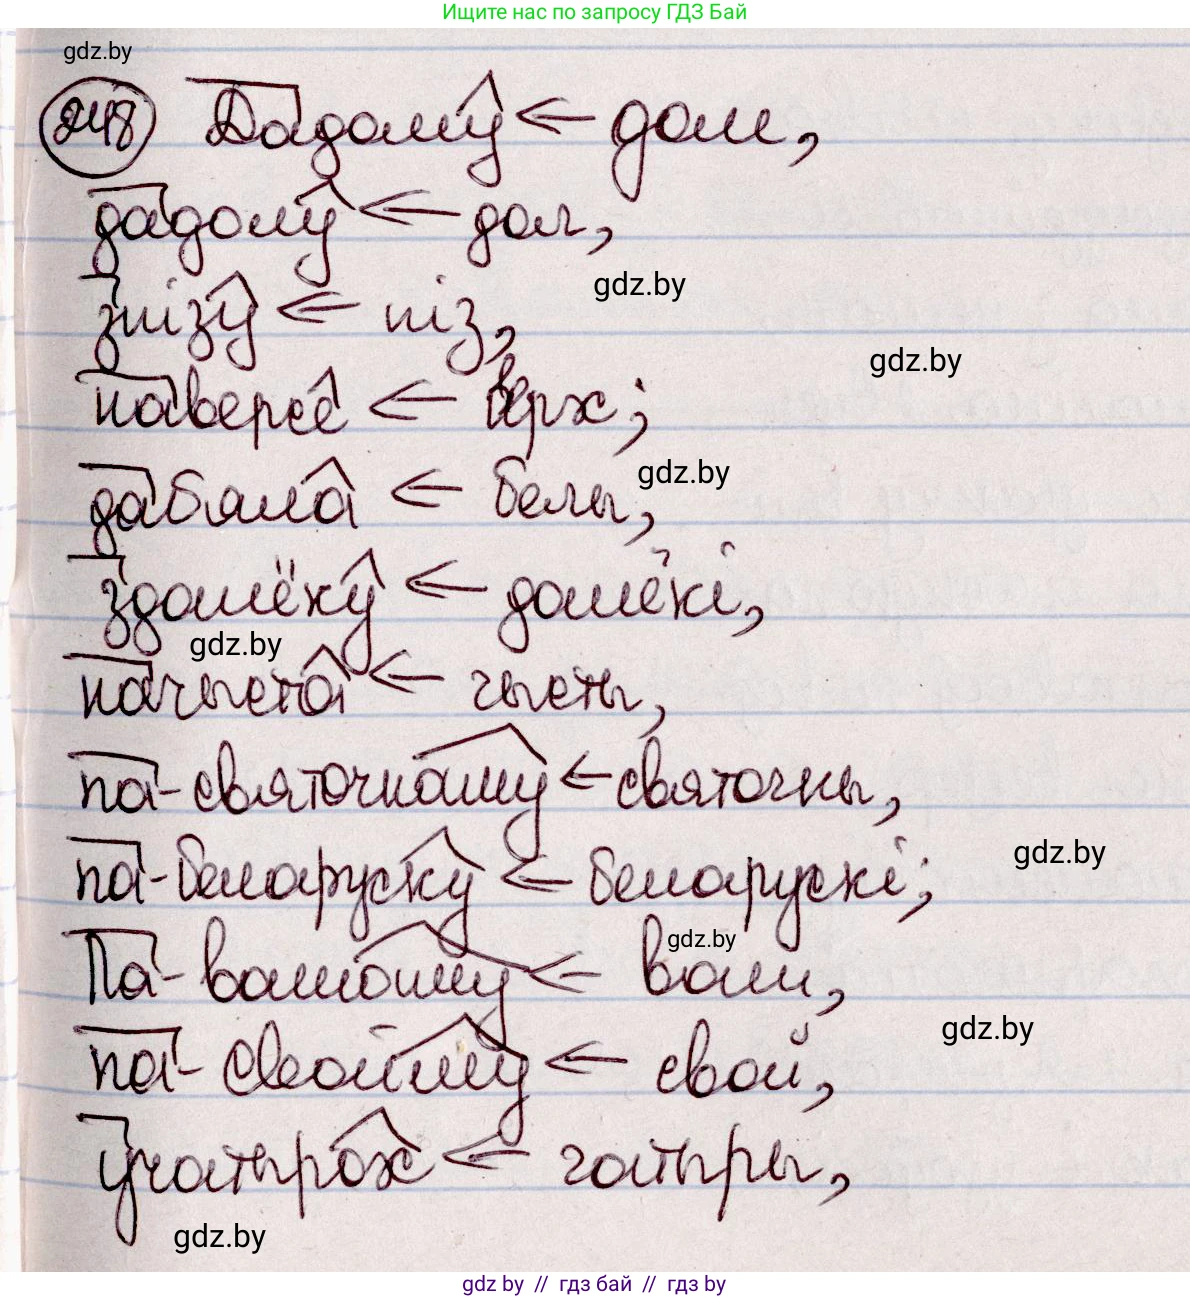 Ищите нас по запросу ГДЗ Бай
gdz.by
248 Дадому ← дом,
дадолу ← дол,
gdz.by
знізу ← ніз,
gdz.by
наверсе ← верх;
gdz.by
дабяла ← белы,
здалёку ← далёкі,
gdz.by
начыста ← чысты,
па-святочнаму ← святочны,
gdz.by
па-беларуску ← беларускі;
gdz.by
Па-вашаму ← ваш,
gdz.by
па-свойму ← свой,
учатырох ← чатыры,
gdz.by
gdz by // гдз бай // гдз by